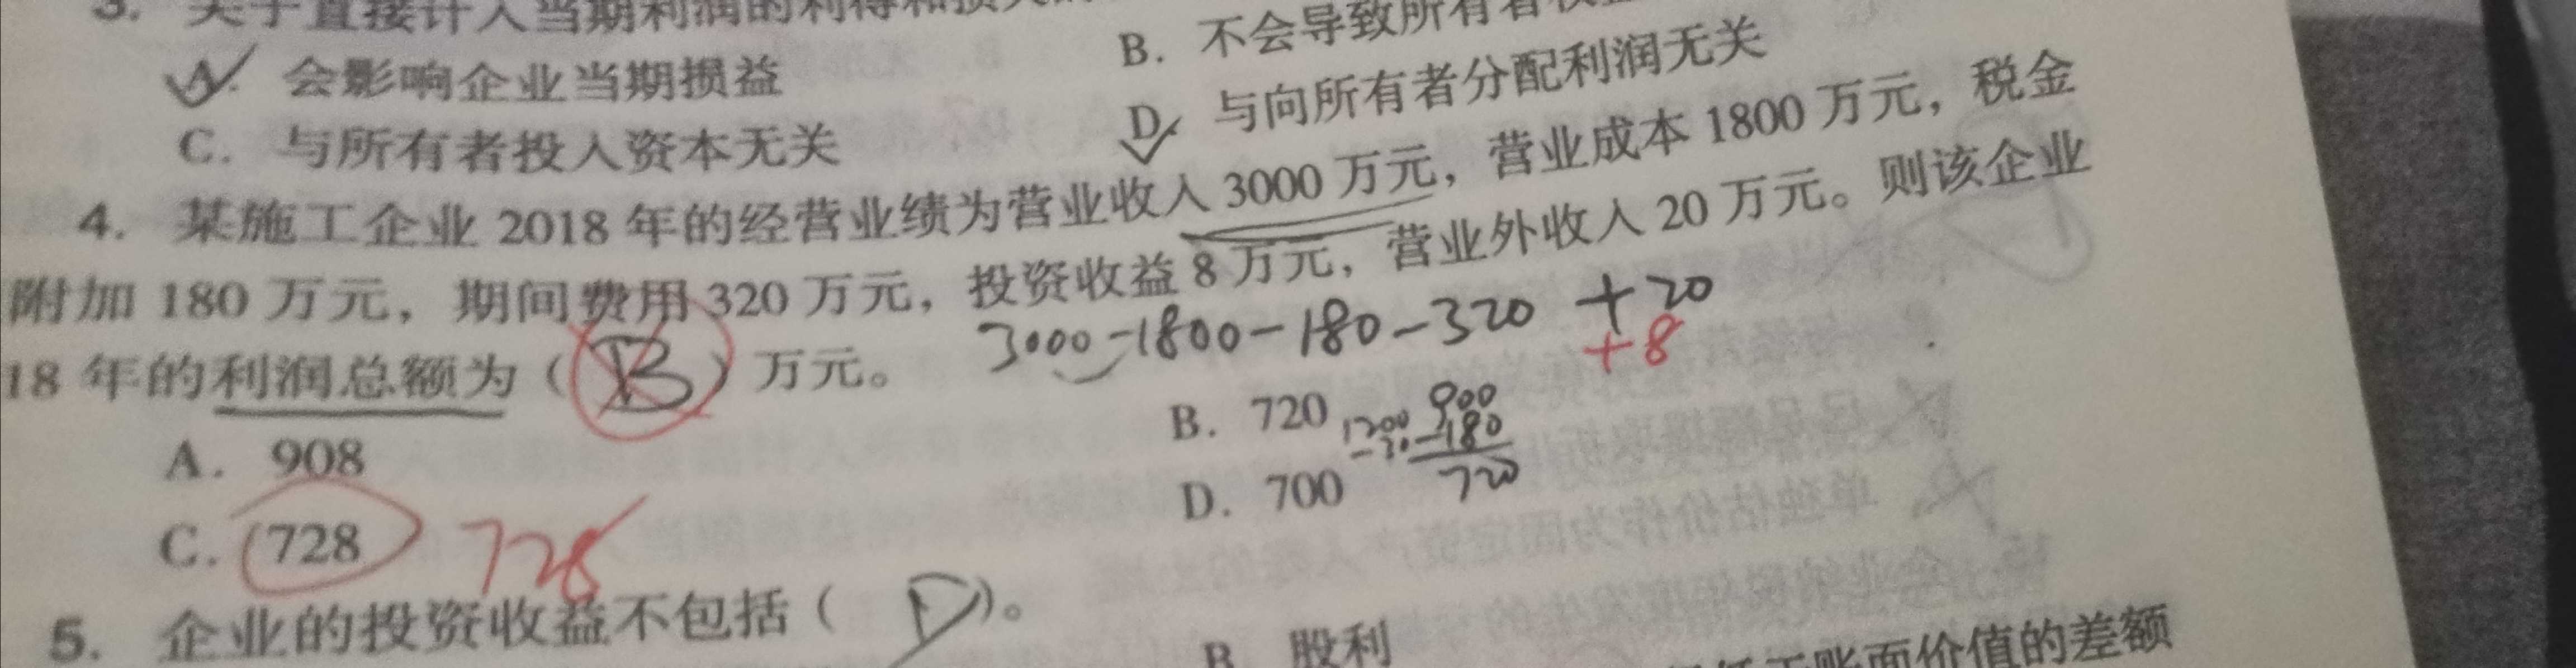 3. 关于直接计入当期利润的利得和损失
A. 会影响企业当期损益
B. 不会导致所有者权
C. 与所有者投入资本无关
D. 与向所有者分配利润无关
4. 某施工企业 2018 年的经营业绩为营业收入 3000 万元，营业成本 1800 万元，税金
附加 180 万元，期间费用 320 万元，投资收益 8 万元，营业外收入 20 万元。则该企业
18 年的利润总额为（ B ）万元。
3000-1800-180-320 +20
+8
A. 908
B. 720
1200
900
-180
720
C. 728
728
D. 700
5. 企业的投资收益不包括（ D ）。
B 股利
账面价值的差额